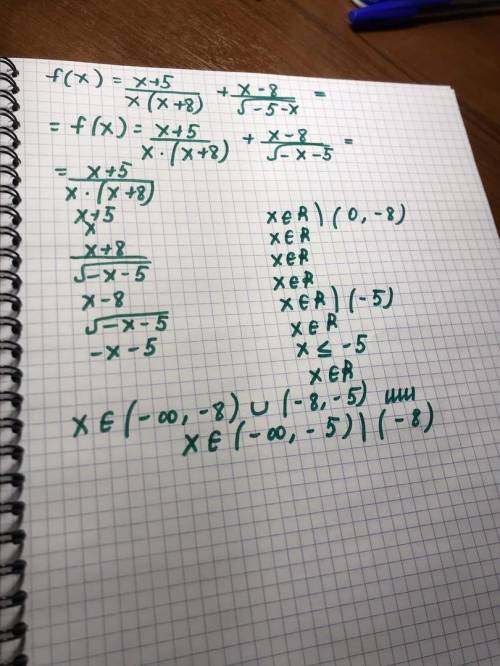 f(x) = x+5 / x(x+8) + x-8 / √-5-x =
= f(x) = x+5 / x·(x+8) + x-8 / √-x-5 =
= x+5 / x·(x+8)
x+5
x
x+8
√-x-5
x-8
√-x-5
-x-5
x∈R \ (0, -8)
x∈R
x∈R
x∈R
x∈R \ (-5)
x∈R
x ≤ -5
x∈R
x ∈ (-∞, -8) ∪ (-8, -5) или
x ∈ (-∞, -5) \ (-8)